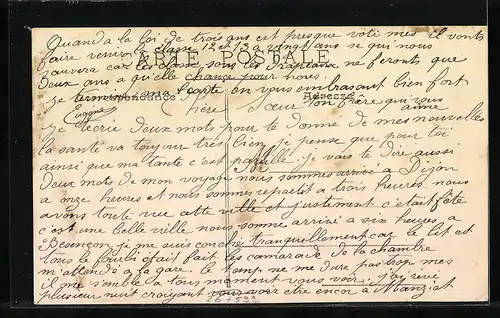 Quand a la loi de trois ans est presque voté mes il vonts
faire venir la classe 12 et 13 a vingt ans se qui nous
sauvera car les classe sous les drapeaux ne feronts que
deux ans a qu'elle chance pour nous.
CARTE POSTALE
Je termine ans t'opte en vous embrasant bien fort
Correspondance
Adresse
ton frère qui vous aime
Eugene
Chère Sœur
Je t'ecrie deux mots pour te donne de mes nouvelles
la santé va toujour très bien je pense que pour toi
ainsi que ma tante c'est pareille. Je vais te dire aussi
deux mots de mon voyage nous sommes arrivé a Dijon
a onze heures et nous sommes repartit a trois heures. nous
avons toute vue cette ville et justement c'etait fête
c'est une belle ville nous somme arrivé a six heures a
Besançon je me suis couché tranquillement car le lit et
tous é fourbi etait fait les camarade de la chambre
m'attendé a la gare. le temp ne me dure pas trop mes
il me semble a tous moment vous voir j'ai rivé
plusieur nuit croyant vous avoir etre encor a Manziat